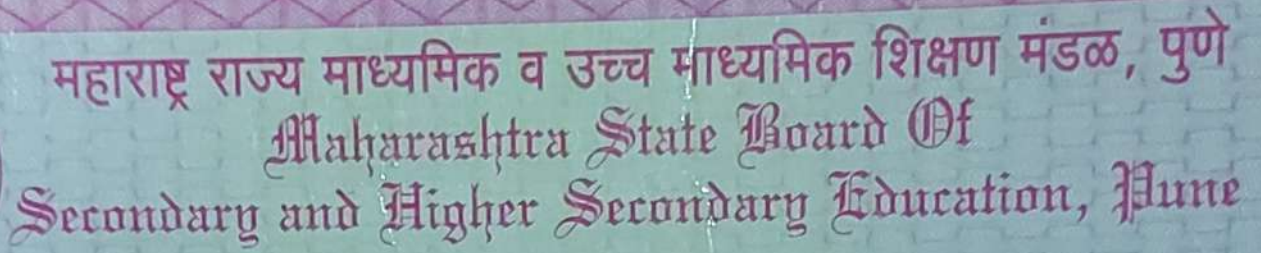 महाराष्ट्र राज्य माध्यमिक व उच्च माध्यमिक शिक्षण मंडळ, पुणे
Maharashtra State Board Of
Secondary and Higher Secondary Education, Pune